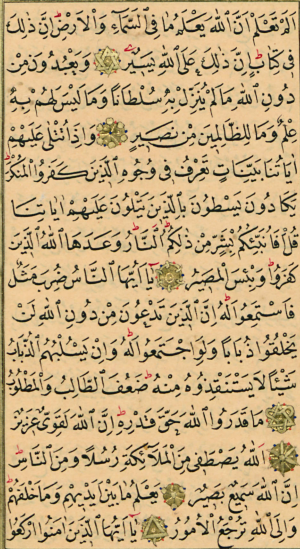 اَلَمْ تَعْلَمْ اَنَّ اللّٰهَ يَعْلَمُ مَا فِي السَّمَاءِ وَالْاَرْضِ اِنَّ ذٰلِكَ
فِي كِتَابٍ اِنَّ ذٰلِكَ عَلَى اللّٰهِ يَسِيرٌ وَيَعْبُدُونَ مِنْ
دُونِ اللّٰهِ مَا لَمْ يُنَزِّلْ بِهِ سُلْطَانًا وَمَا لَيْسَ لَهُمْ بِهِ
عِلْمٌ وَمَا لِلظَّالِمِينَ مِنْ نَصِيرٍ وَاِذَا تُتْلٰى عَلَيْهِمْ
اٰيَاتُنَا بَيِّنَاتٍ تَعْرِفُ فِي وُجُوهِ الَّذِينَ كَفَرُوا الْمُنْكَرَ
يَكَادُونَ يَسْطُونَ بِالَّذِينَ يَتْلُونَ عَلَيْهِمْ اٰيَاتِنَا
قُلْ اَفَاُنَبِّئُكُمْ بِشَرٍّ مِنْ ذٰلِكُمُ النَّارُ وَعَدَهَا اللّٰهُ الَّذِينَ
كَفَرُوا وَبِئْسَ الْمَصِيرُ يَا اَيُّهَا النَّاسُ ضُرِبَ مَثَلٌ
فَاسْتَمِعُوا لَهُ اِنَّ الَّذِينَ تَدْعُونَ مِنْ دُونِ اللّٰهِ لَنْ
يَخْلُقُوا ذُبَابًا وَلَوِ اجْتَمَعُوا لَهُ وَاِنْ يَسْلُبْهُمُ الذُّبَابُ
شَيْئًا لَا يَسْتَنْقِذُوهُ مِنْهُ ضَعُفَ الطَّالِبُ وَالْمَطْلُوبُ
مَا قَدَرُوا اللّٰهَ حَقَّ قَدْرِهِ اِنَّ اللّٰهَ لَقَوِيٌّ عَزِيزٌ
اَللّٰهُ يَصْطَفِي مِنَ الْمَلٰٓئِكَةِ رُسُلًا وَمِنَ النَّاسِ
اِنَّ اللّٰهَ سَمِيعٌ بَصِيرٌ يَعْلَمُ مَا بَيْنَ اَيْدِيهِمْ وَمَا خَلْفَهُمْ
وَاِلَى اللّٰهِ تُرْجَعُ الْاُمُورُ يَا اَيُّهَا الَّذِينَ اٰمَنُوا ارْكَعُوا